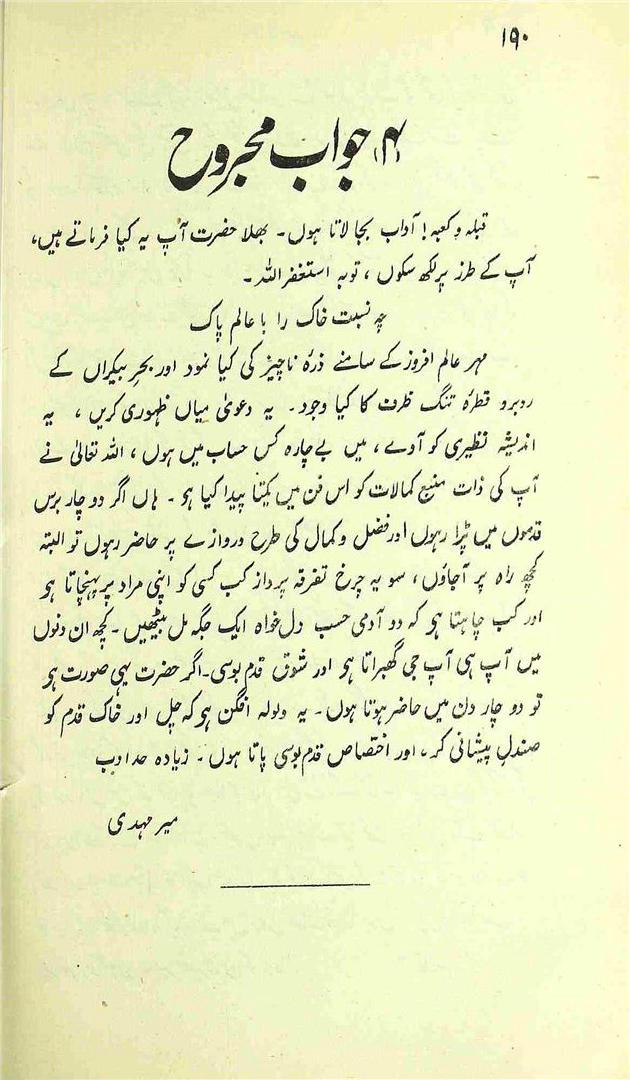 ۱۹۰
(۴) جواب مجروح
قبلہ و کعبہ! آداب بجا لاتا ہوں۔ بھلا حضرت آپ یہ کیا فرماتے ہیں،
آپ کے طرز پر لکھ سکوں، توبہ استغفر اللہ۔
چہ نسبت خاک را با عالم پاک
مہر عالم افروز کے سامنے ذرۂ ناچیز کی کیا نمود اور بحرِ بیکراں کے
روبرو قطرۂ تنگ ظرف کا کیا وجود۔ یہ دعویٰ میاں ظہوری کریں، یہ
اندیشہ نظیری کو آوے، میں بے چارہ کس حساب میں ہوں، اللہ تعالیٰ نے
آپ کی ذات منبع کمالات کو اس فن میں یکتا پیدا کیا ہو۔ ہاں اگر دو چار برس
قدموں میں پڑا رہوں اور فضل و کمال کی طرح دروازے پر حاضر رہوں تو البتہ
کچھ راہ پر آجاؤں، سو یہ چرخ تفرقہ پرداز کب کسی کو اپنی مراد پر پہنچاتا ہو
اور کب چاہتا ہو کہ دو آدمی حسب دل خواہ ایک جگہ مل بیٹھیں۔ کچھ ان دنوں
میں آپ ہی آپ جی گھبراتا ہو اور شوق قدم بوسی۔ اگر حضرت یہی صورت ہو
تو دو چار دن میں حاضر ہوتا ہوں۔ یہ ولولہ افگن ہو کہ چل اور خاک قدم کو
صندلِ پیشانی کر، اور اختصاص قدم بوسی پاتا ہوں۔ زیادہ حد ادب
میر مہدی